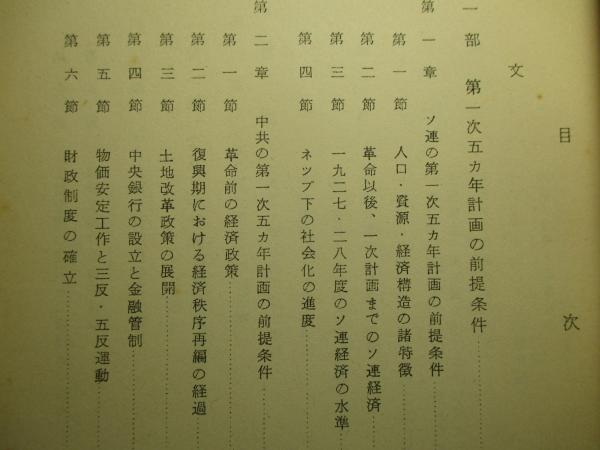 目次
文
一部 第一次五カ年計画の前提条件
第一章 ソ連の第一次五カ年計画の前提条件
第一節 人口・資源・経済構造の諸特徴
第二節 革命以後、一次計画までのソ連経済
第三節 一九二七・二八年度のソ連経済の水準
第四節 ネップ下の社会化の進度
第二章 中共の第一次五カ年計画の前提条件
第一節 革命前の経済政策
第二節 復興期における経済秩序再編の経過
第三節 土地改革政策の展開
第四節 中央銀行の設立と金融管制
第五節 物価安定工作と三反・五反運動
第六節 財政制度の確立